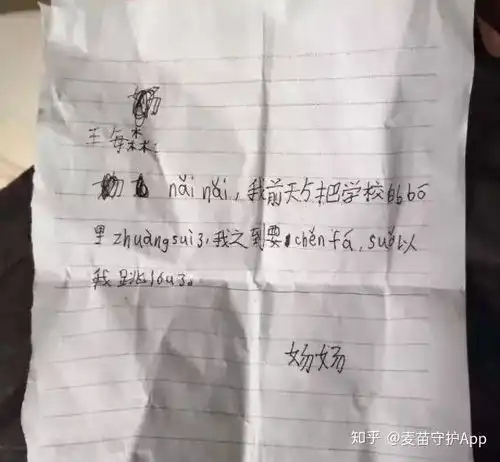 nǎi nǎi，我前天把学校的bō
里zhuàng suì了，我之到要chěn fá，suǒ以
我跳lóu了。
知乎 @麦苗守护App